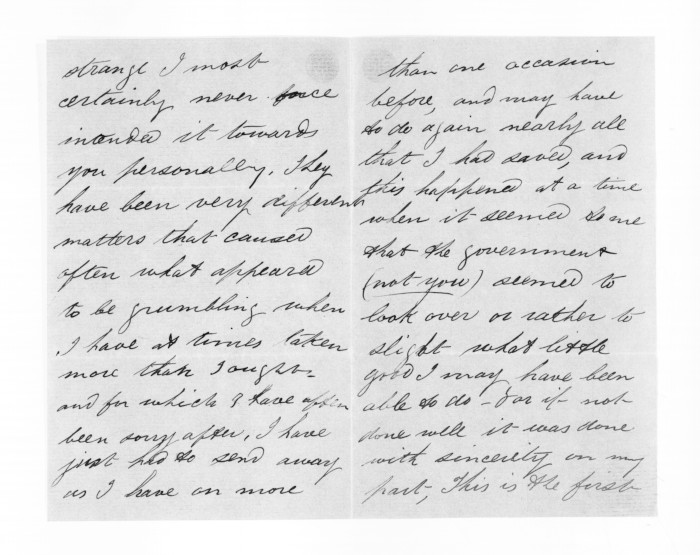 strange I most
certainly never once
intended it towards
you personally. They
have been very different
matters that caused
often what appeared
to be grumbling when
I have at times taken
more than I ought-
and for which I have often
been sorry after. I have
just had to send away
as I have on more
than one occasion
before, and may have
to do again nearly all
that I had saved, and
this happened at a time
when it seemed to me
that the government
(not you) seemed to
look over or rather to
slight what little
good I may have been
able to do - for if not
done well it was done
with sincerity on my
part, This is the first